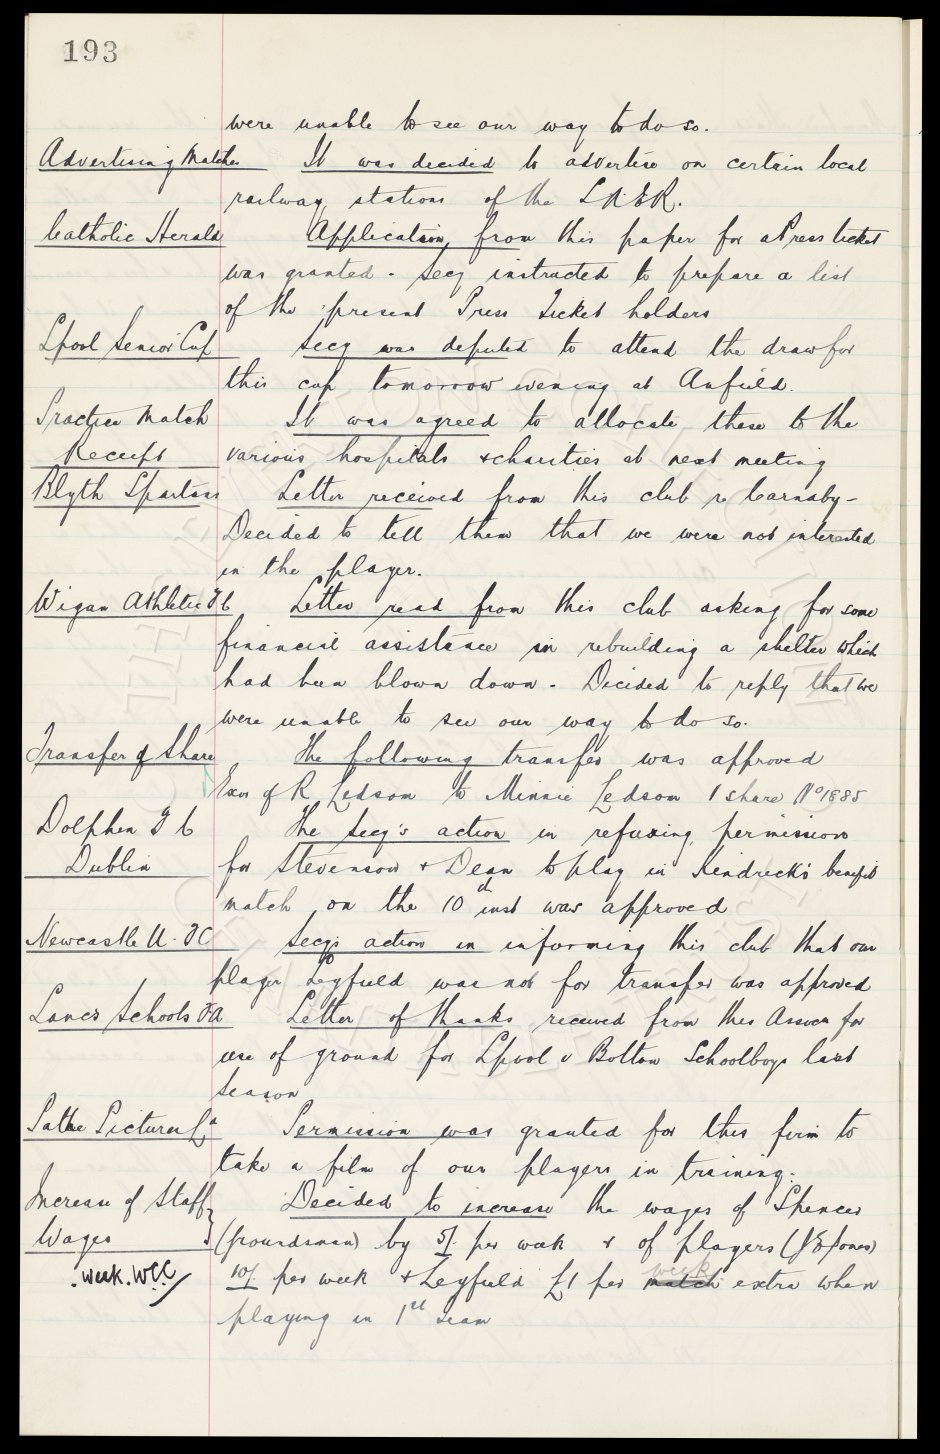 193
were unable to see our way to do so.
Advertising Matches It was decided to advertise on certain local
railway stations of the LNER.
Catholic Herald Application from this paper for a Press ticket
was granted - Secy instructed to prepare a list
of the present Press Ticket holders
Lpool Senior Cup Secy was deputed to attend the draw for
this cup tomorrow evening at Anfield.
Practice Match It was agreed to allocate these to the
Receipts various hospitals & charities at next meeting
Blyth Spartans Letter received from this club re Carnaby -
Decided to tell them that we were not interested
in the player.
Wigan Athletic FC Letter read from this club asking for some
financial assistance in rebuilding a shelter which
had been blown down - Decided to reply that we
were unable to see our way to do so.
Transfer of Share The following transfer was approved
Exor of R Ledsom to Minnie Ledsom 1 share No 1885
Dolphin F C The Secy's action in refusing permission
Dublin for Stevenson & Dean to play in Kendrick's benefit
match on the 10th inst was approved
Newcastle U. FC Secy's action in informing this club that our
player Leyfield was not for transfer was approved
Lancs Schools FA Letter of thanks received from this Assocn for
use of ground for Lpool v Bolton Schoolboys last
season
Pathe Pictures Ld Permission was granted for this firm to
take a film of our players in training.
Increase of Staff Decided to increase the wages of Spencer
Wages (Groundsman) by 5/- per week & of players (J E Jones)
. week. WCC 10/- per week & Leyfield £1 per match week extra when
playing in 1st team